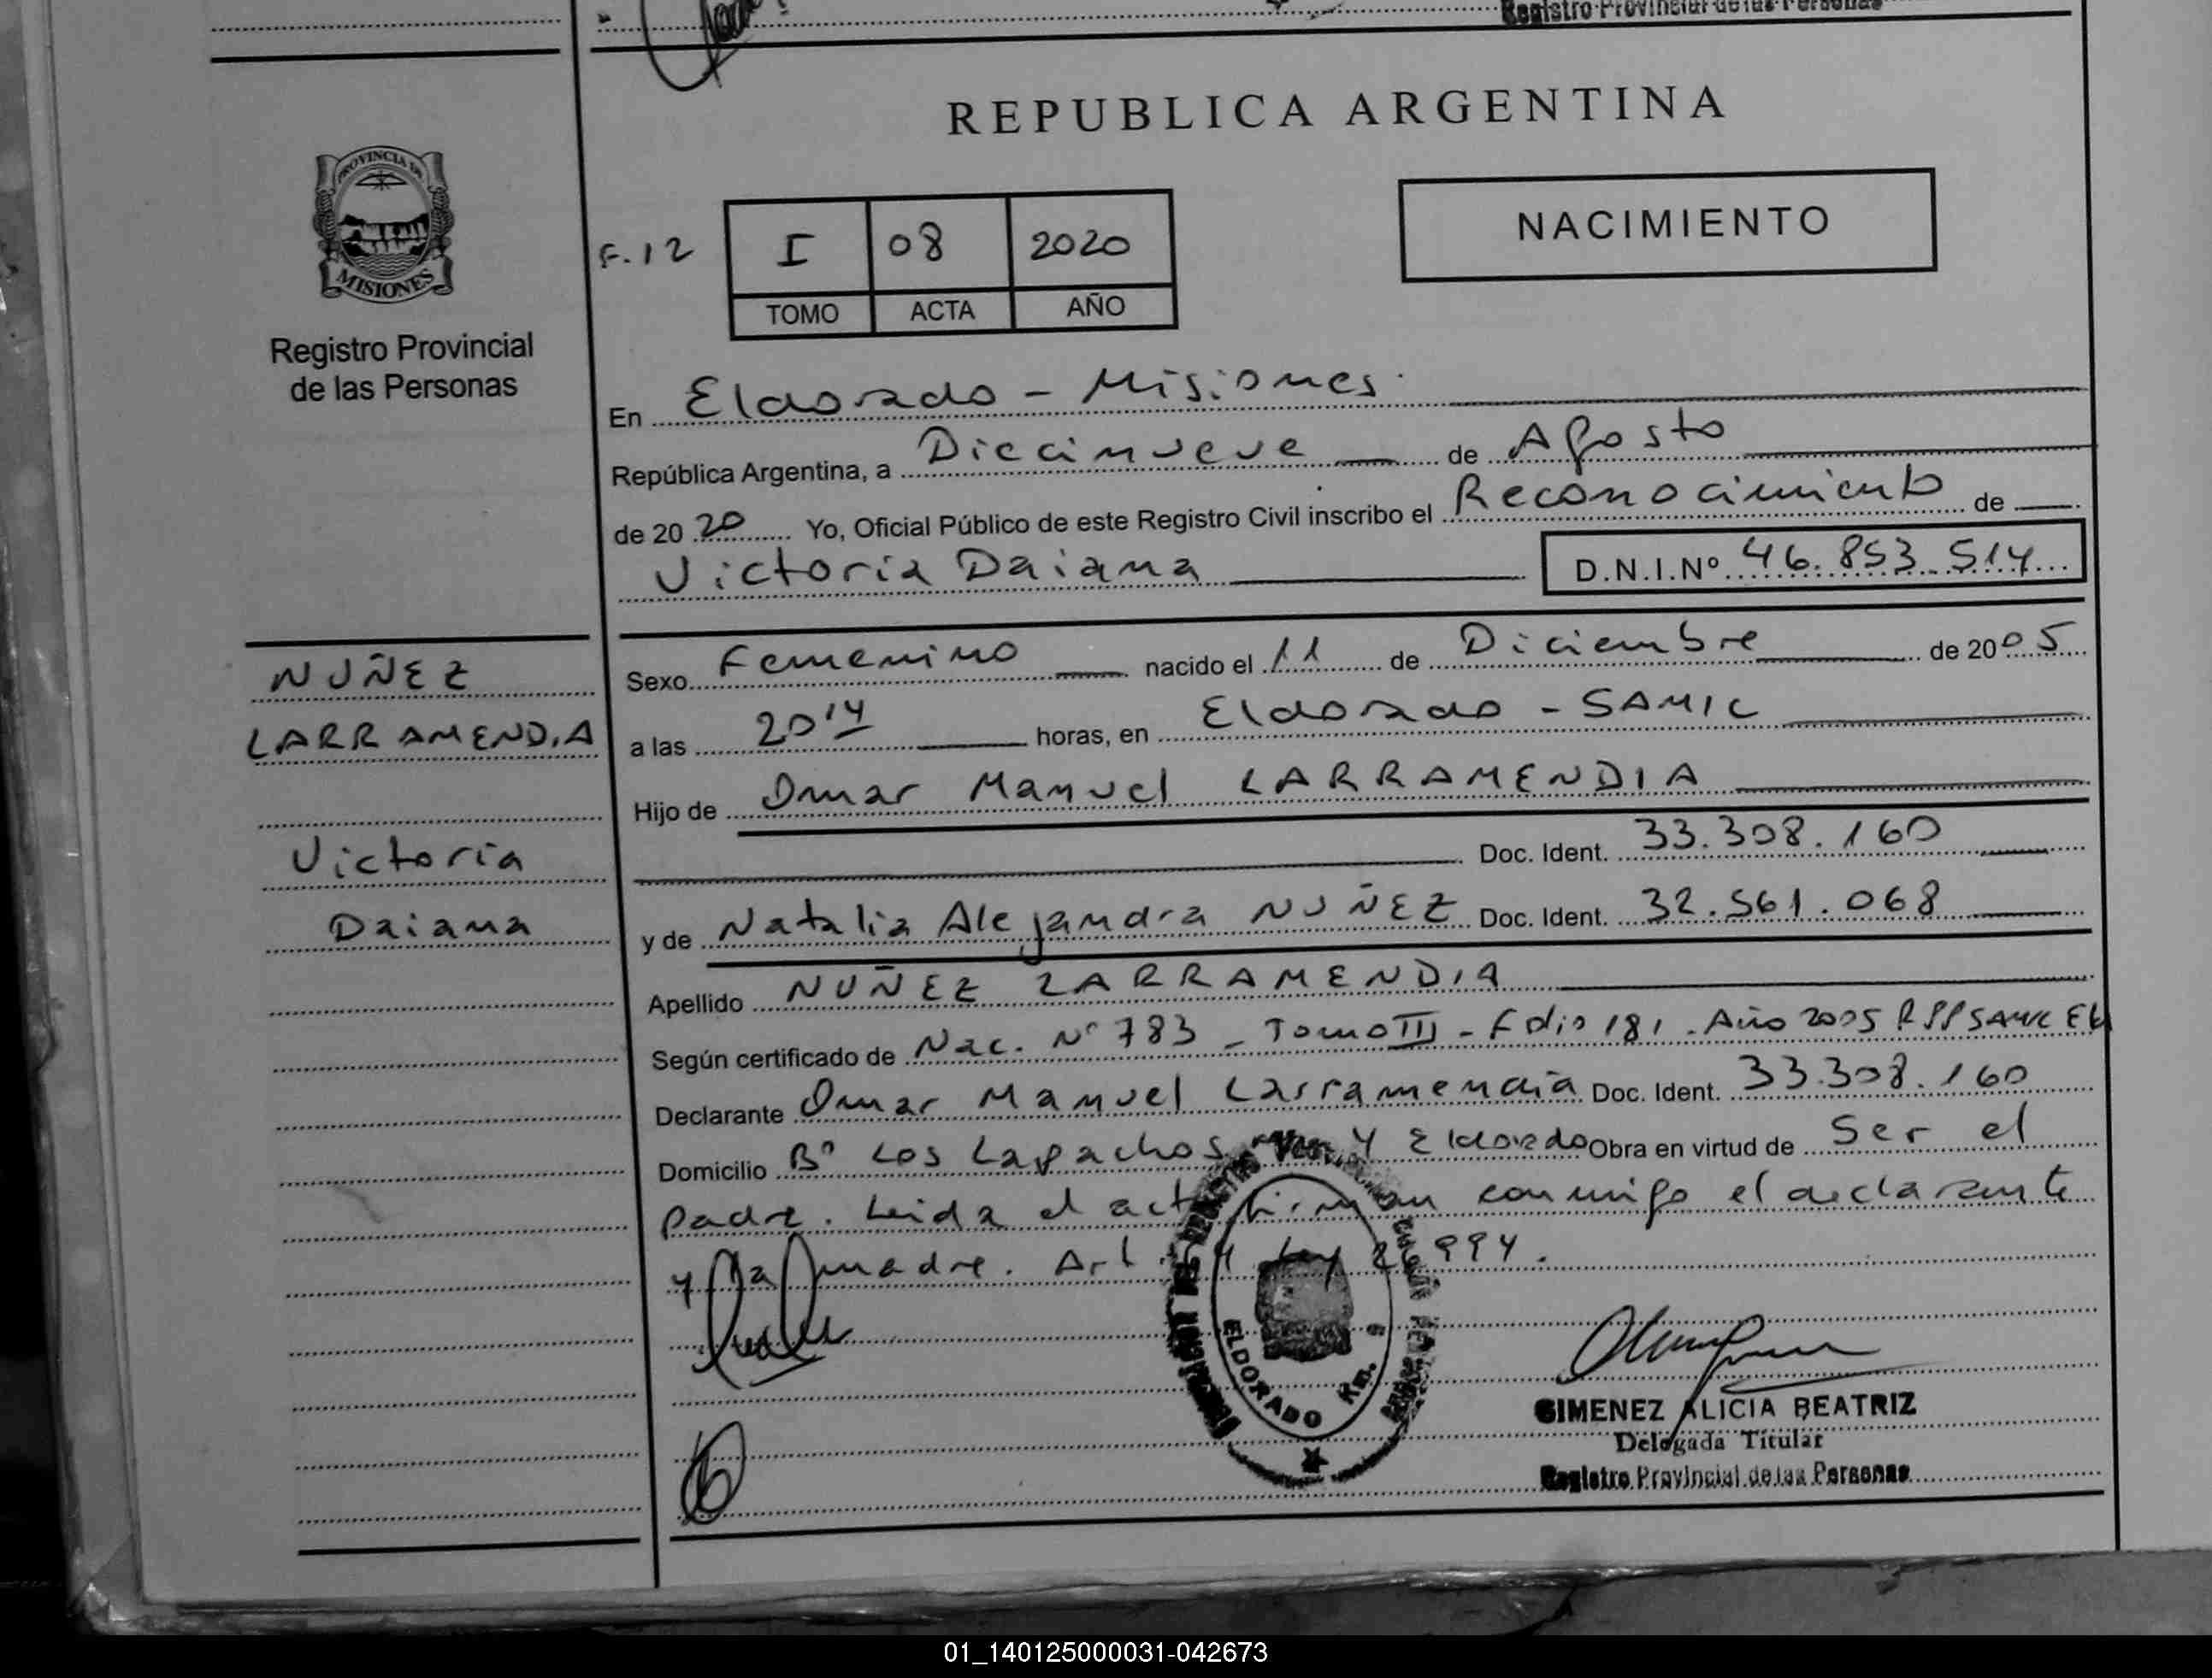 Registro Provincial de las Personas
REPUBLICA ARGENTINA
PROVINCIA DE
MISIONES
Registro Provincial
de las Personas
F. 12
I 08 2020
TOMO ACTA AÑO
NACIMIENTO
En Eldorado - Misiones
República Argentina, a Diecinueve de Agosto
de 20 20 Yo, Oficial Público de este Registro Civil inscribo el Reconocimiento de
Victoria Daiana D.N.I.Nº 46.853.514
NUÑEZ
LARRAMENDIA
Victoria
Daiana
Sexo Femenino nacido el 11 de Diciembre de 2005
a las 20 14 horas, en Eldorado - SAMIC
Hijo de Omar Manuel LARRAMENDIA
Doc. Ident. 33.308.160
y de Natalia Alejandra NUÑEZ Doc. Ident. 32.561.068
Apellido NUÑEZ LARRAMENDIA
Según certificado de Nac. Nº 783 - Tomo III - Folio 181 - Año 2005 RPP SAMIC
Declarante Omar Manuel Larramendia Doc. Ident. 33.308.160
Domicilio Bº Los Lapachos Eldorado Obra en virtud de Ser el
padre. Leida el acta firman conmigo el declarante
y la madre. Art.
ELDORADO Km.
GIMENEZ ALICIA BEATRIZ
Delegada Titular
Registro Provincial de las Personas
01_140125000031-042673